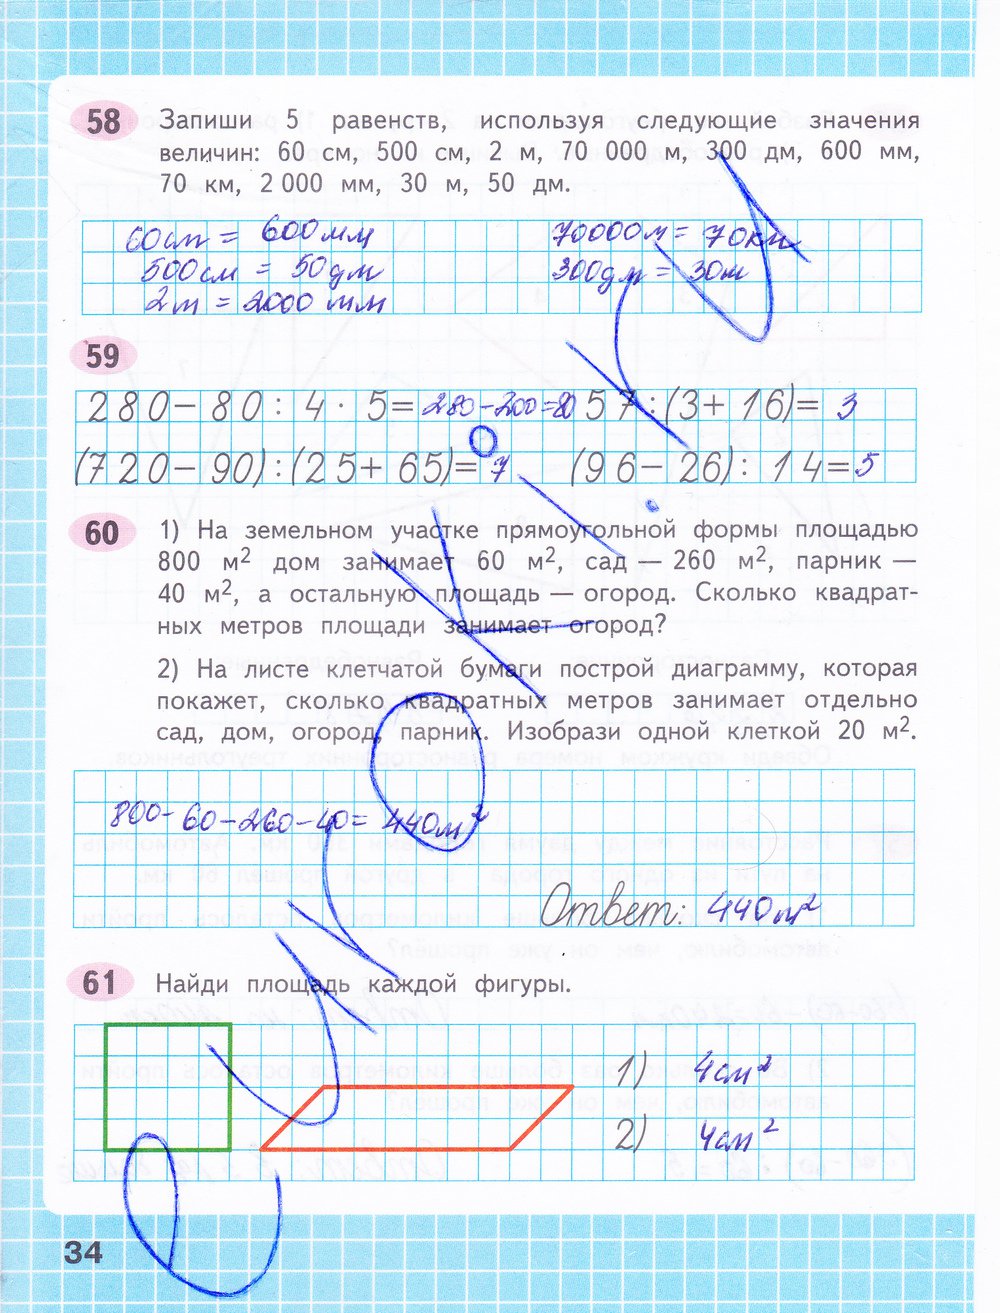 58 Запиши 5 равенств, используя следующие значения
величин: 60 см, 500 см, 2 м, 70 000 м, 300 дм, 600 мм,
70 км, 2 000 мм, 30 м, 50 дм.
60см = 600мм 70000м = 70км
500см = 50дм 300дм = 30м
2м = 2000 мм
59
280 − 80 : 4 · 5 = 280 − 200 = 80 57 : (3 + 16) = 3
(720 − 90) : (25 + 65) = 7 (96 − 26) : 14 = 5
60 1) На земельном участке прямоугольной формы площадью
800 м² дом занимает 60 м², сад — 260 м², парник —
40 м², а остальную площадь — огород. Сколько квадрат-
ных метров площади занимает огород?
2) На листе клетчатой бумаги построй диаграмму, которая
покажет, сколько квадратных метров занимает отдельно
сад, дом, огород, парник. Изобрази одной клеткой 20 м².
800 − 60 − 260 − 40 = 440м²
Ответ: 440м²
61 Найди площадь каждой фигуры.
1) 4см²
2) 4см²
34